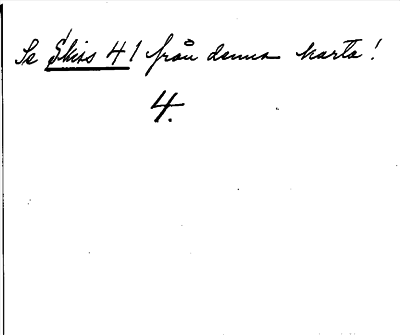 Se Skiss 41 från denna karta!
4.